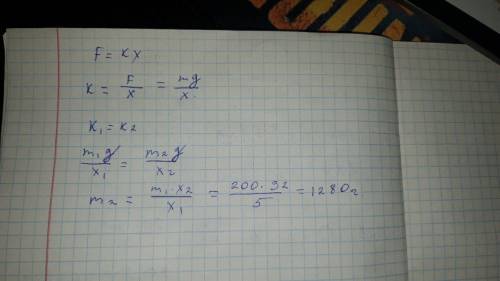 F = kx
k = F/x = mg/x
k₁ = k₂
m₁g/x₁ = m₂g/x₂
m₂ = m₁·x₂/x₁ = 200·32/5 = 1280г